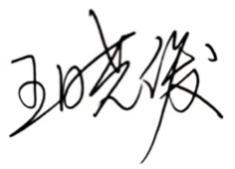 王晓俊